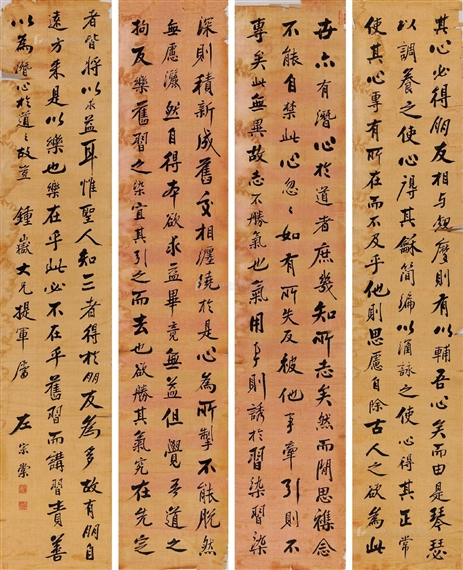 世亦有潛心於道者庶幾知所志矣然而閒思雜念
不能自禁此心忽忽如有所失及被他事牽引則不
專矣此無異故志不勝氣也氣用事則誘於習染習染
深則積新成舊交相纏繞於是心為所掣不能脫然
無慮灑然自得本欲求益畢竟無益但覺吾道之
拘反樂舊習之染宜其引之而去也欲勝其氣究在先定
其心必得朋友相與砥摩則有以輔吾心矣而由是琴瑟
以調養之使心得其龢簡編以涵詠之使心得其正常
使其心專有所在而不及乎他則思慮自除古人之欲為此
者皆將以求益耳惟聖人知三者得於朋友為多故有朋自
遠方來是以樂也樂在乎此必不在乎舊習而講習責善
以為潛心於道之故豈
鍾嶽大兄提軍屬
左宗棠